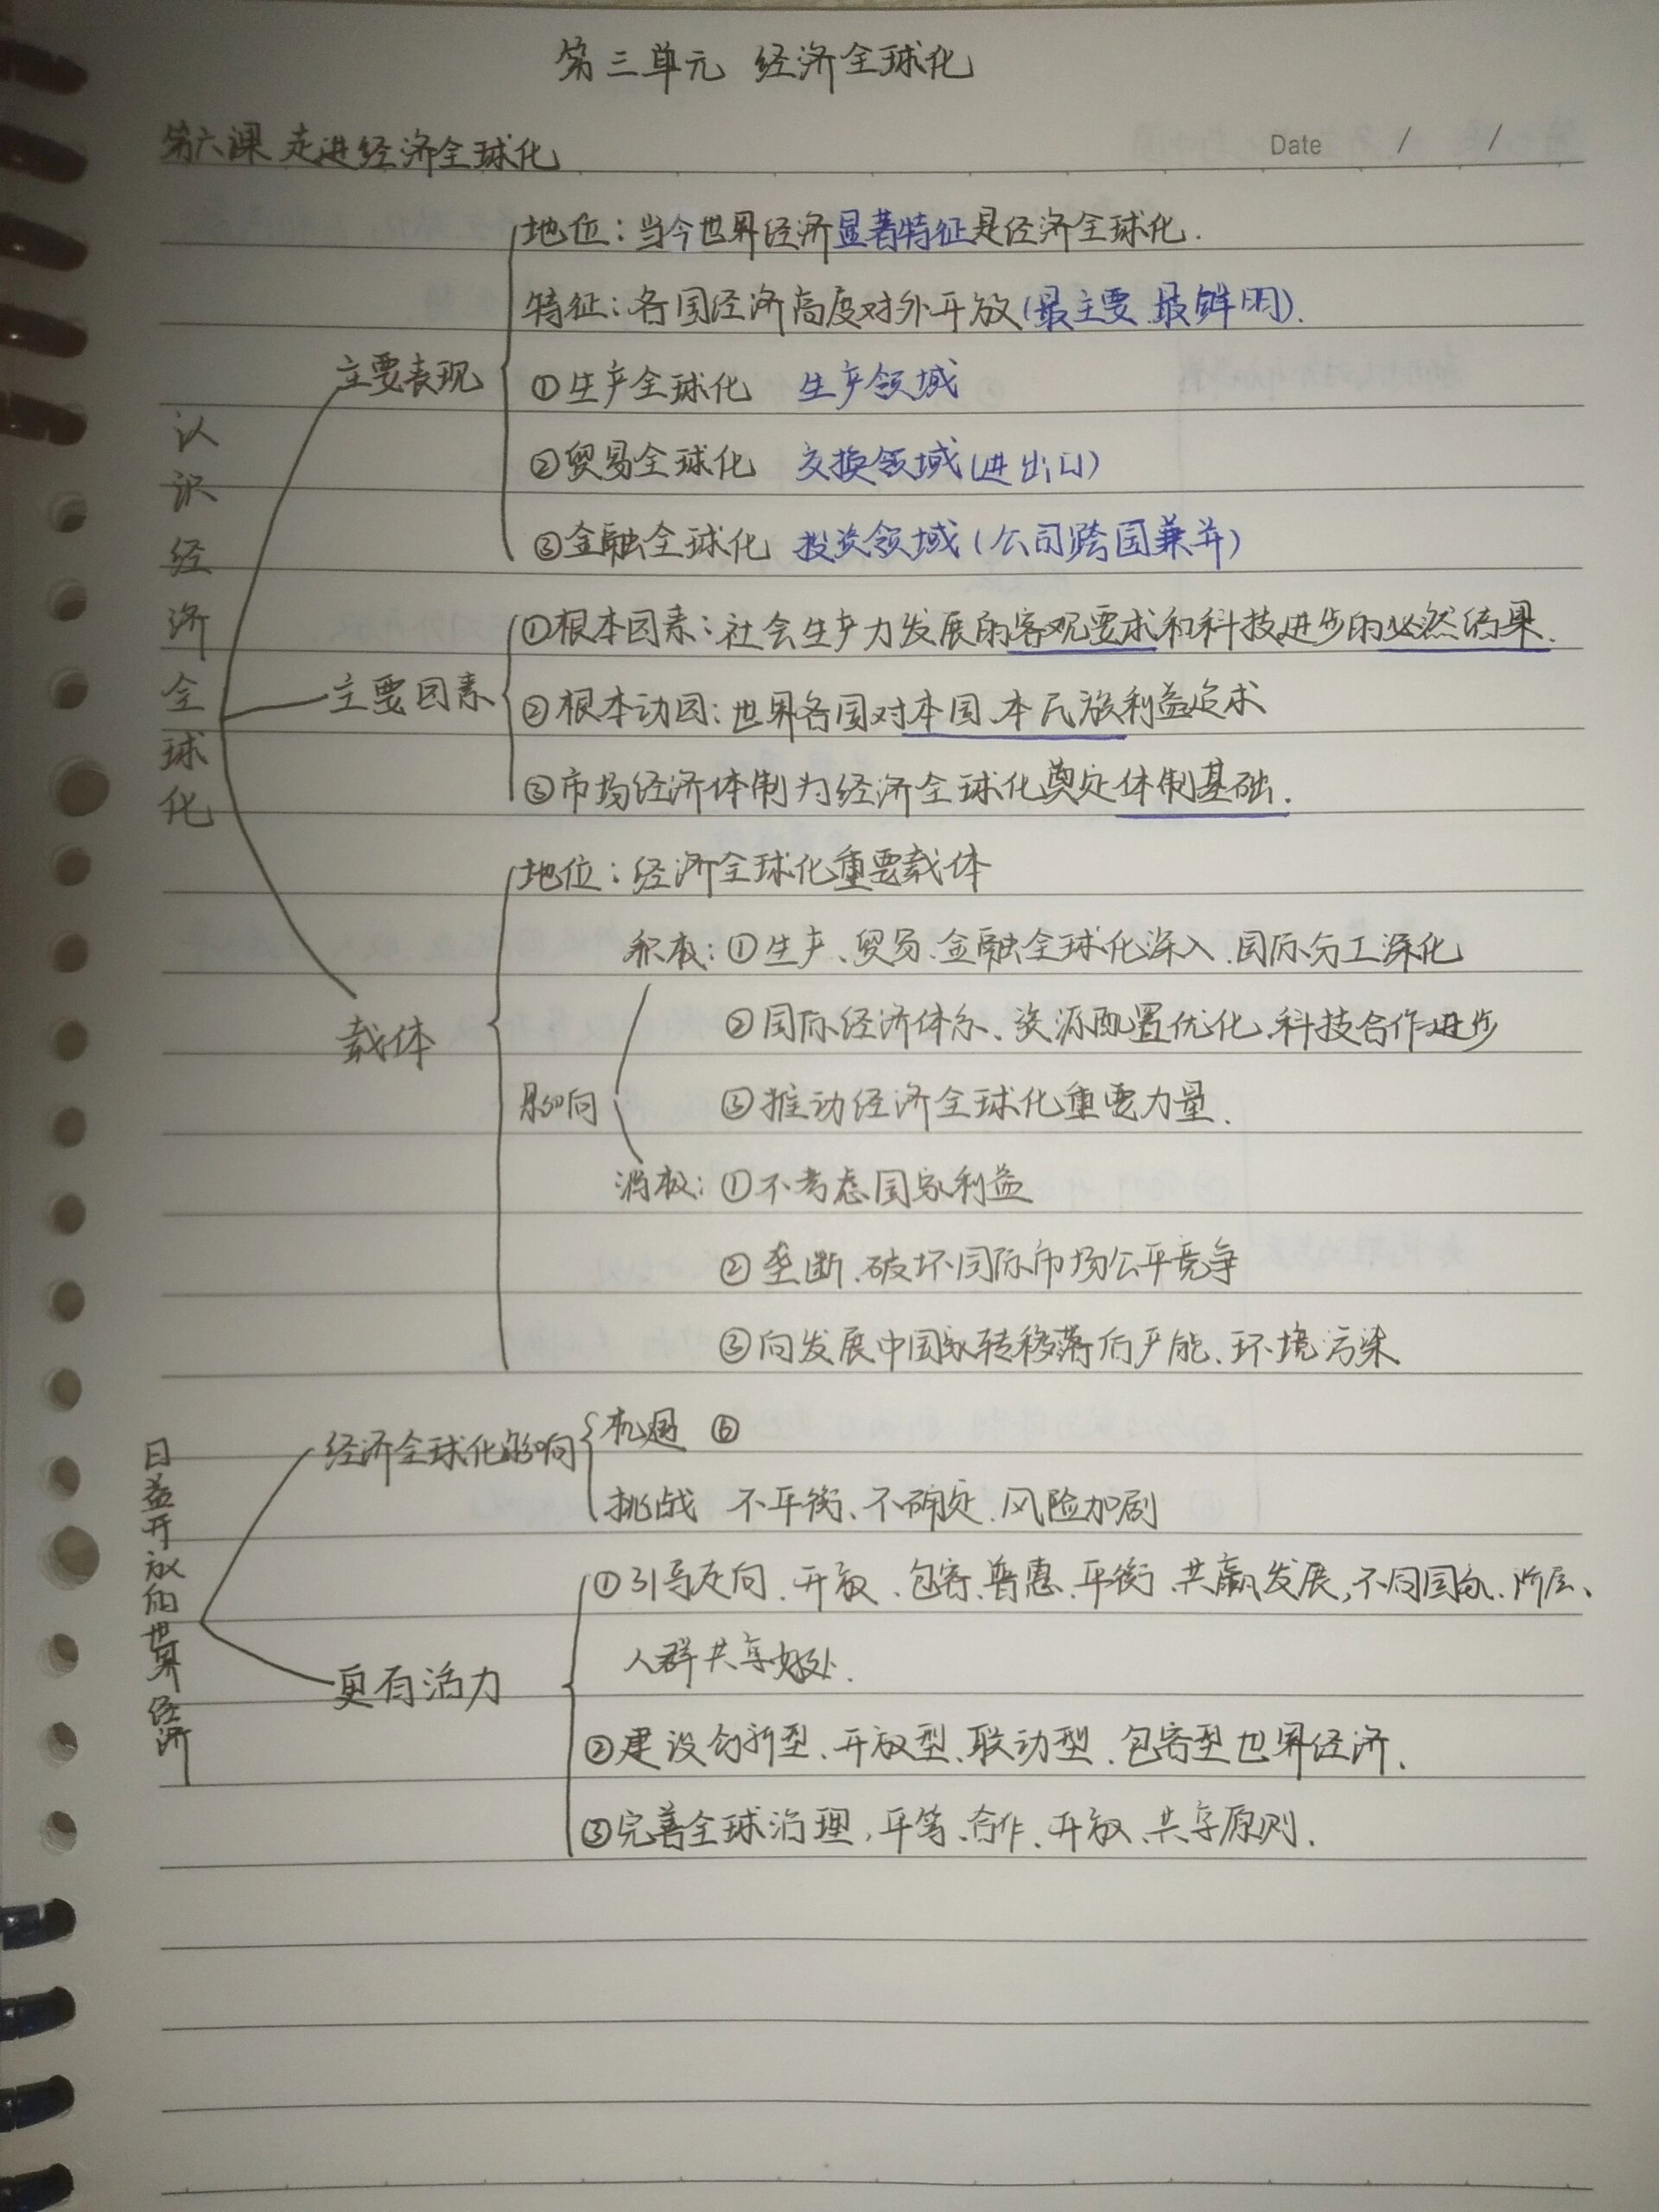 第三单元 经济全球化
第六课 走进经济全球化
Date / /
认识经济全球化
主要表现
地位：当今世界经济显著特征是经济全球化.
特征：各国经济高度对外开放(最主要、最鲜明).
①生产全球化 生产领域
②贸易全球化 交换领域(进出口)
③金融全球化 投资领域(公司跨国兼并)
主要因素
①根本因素：社会生产力发展的客观要求和科技进步的必然结果.
②根本动因：世界各国对本国、本民族利益追求
③市场经济体制为经济全球化奠定体制基础.
载体
地位：经济全球化重要载体
影响
积极：①生产、贸易、金融全球化深入、国际分工深化
②国际经济体系、资源配置优化、科技合作进步
③推动经济全球化重要力量.
消极：①不考虑国家利益
②垄断、破坏国际市场公平竞争
③向发展中国家转移落后产能、环境污染
日益开放的世界经济
经济全球化影响
机遇 ⑥
挑战 不平衡、不确定、风险加剧
更有活力
①引导走向、开放、包容、普惠、平衡、共赢发展,不同国家、阶层、
人群共享好处.
②建设创新型、开放型、联动型、包容型世界经济.
③完善全球治理,平等、合作、开放、共享原则.